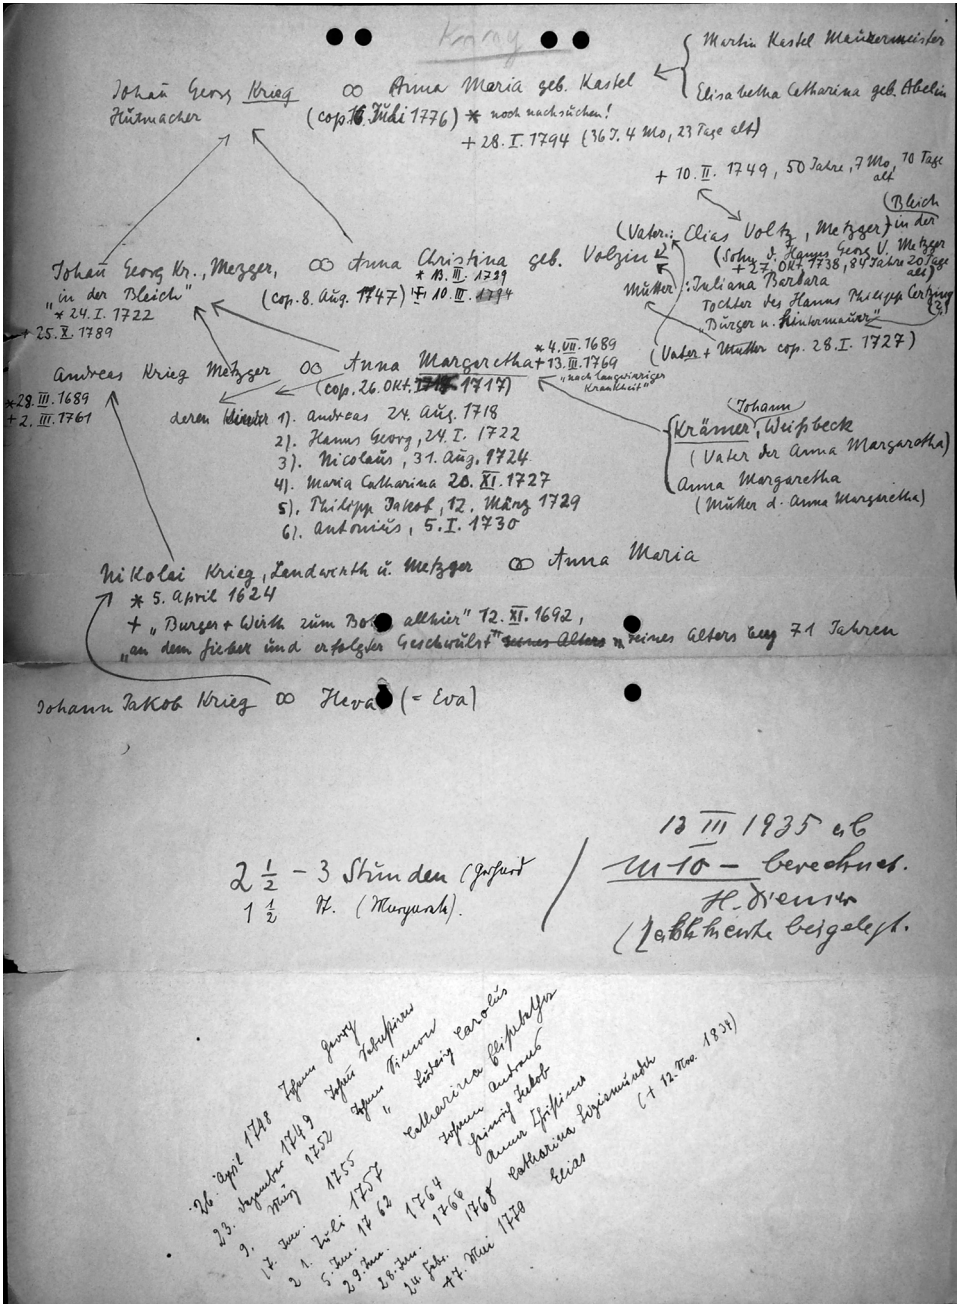 Krieg
Martin Kastel Maurermeister
Elisabetha Catharina geb. Abelin
Johan̄ Georg Krieg ∞ Anna Maria geb. Kastel
Hutmacher (cop. 16. Juli 1776) * noch nachsuchen!
+ 28. I. 1794 (36 J. 4 Mo, 23 Tage alt)
+ 10. II. 1749, 50 Jahre, 7 Mo, 10 Tage
alt
(Vater: Elias Voltz, Metzger) in der
(Bleich
(Sohn d. Hanns Georg V. Metzger
+ 27. Okt. 1738, 84 Jahre 20 Tage
alt)
Mutter: Juliana Barbara
Tochter des Hanns Philipp
(?)
"Burger u. Hintermauer"
(Vater + Mutter cop. 28. I. 1727)
Johan̄ Georg Kr., Mezger, ∞ Anna Christina geb. Volzin
"in der Bleich" (cop. 8. Aug. 1747) * 13. III. 1729
* 24. I. 1722 + 10. III. 1794
+ 25. X. 1789
Andreas Krieg Metzger ∞ Anna Margaretha
* 4. VII. 1689
+ 13. III. 1769
"nach langwieriger
Krankheit"
(cop. 26. Okt. 1717)
* 28. III. 1689
+ 2. III. 1761
deren Kinder 1). Andreas 24. Aug. 1718
2). Hanns Georg, 24. I. 1722
3). Nicolaus, 31. Aug. 1724
4). Maria Catharina 20. XI. 1727
5). Philipp Jakob, 12. März 1729
6). Antonius, 5. I. 1730
Johann
Krämer, Weißbeck
(Vater der Anna Margaretha)
Anna Margaretha
(Mutter d. Anna Margaretha)
Nikolai Krieg, Landwirth u. Metzger ∞ Anna Maria
* 5. April 1624
+ "Burger + Wirth zum allhier" 12. XI. 1692,
"an dem fieber und erfolgter Geschwulst" seines Alters "seines Alters bey 71 Jahren
Johann Jakob Krieg ∞ Heva (= Eva)
2 1/2 - 3 Stunden (Gerhard
1 1/2 St. (Margareth).
13 III 1935 ab
M 10 - berechnet.
H. Diemer
beigelegt.
26. April 1748 Johann Georg
23. Dezember 1749 Johan̄ Sebastian
9. März 1752 Johann Simon
17. Jan. 1755 " Ludwig Carolus
21. Juli 1757 Catharina Elisabetha
5. Jan. 1762 Johann Andreas
29. Jan. 1764 Heinrich Jakob
28. Jan. 1766 Anna Christina
24. Febr. 1768 Catharina Sigismunda
17. Mai 1770 Elias (+ 12. Nov. 1834)